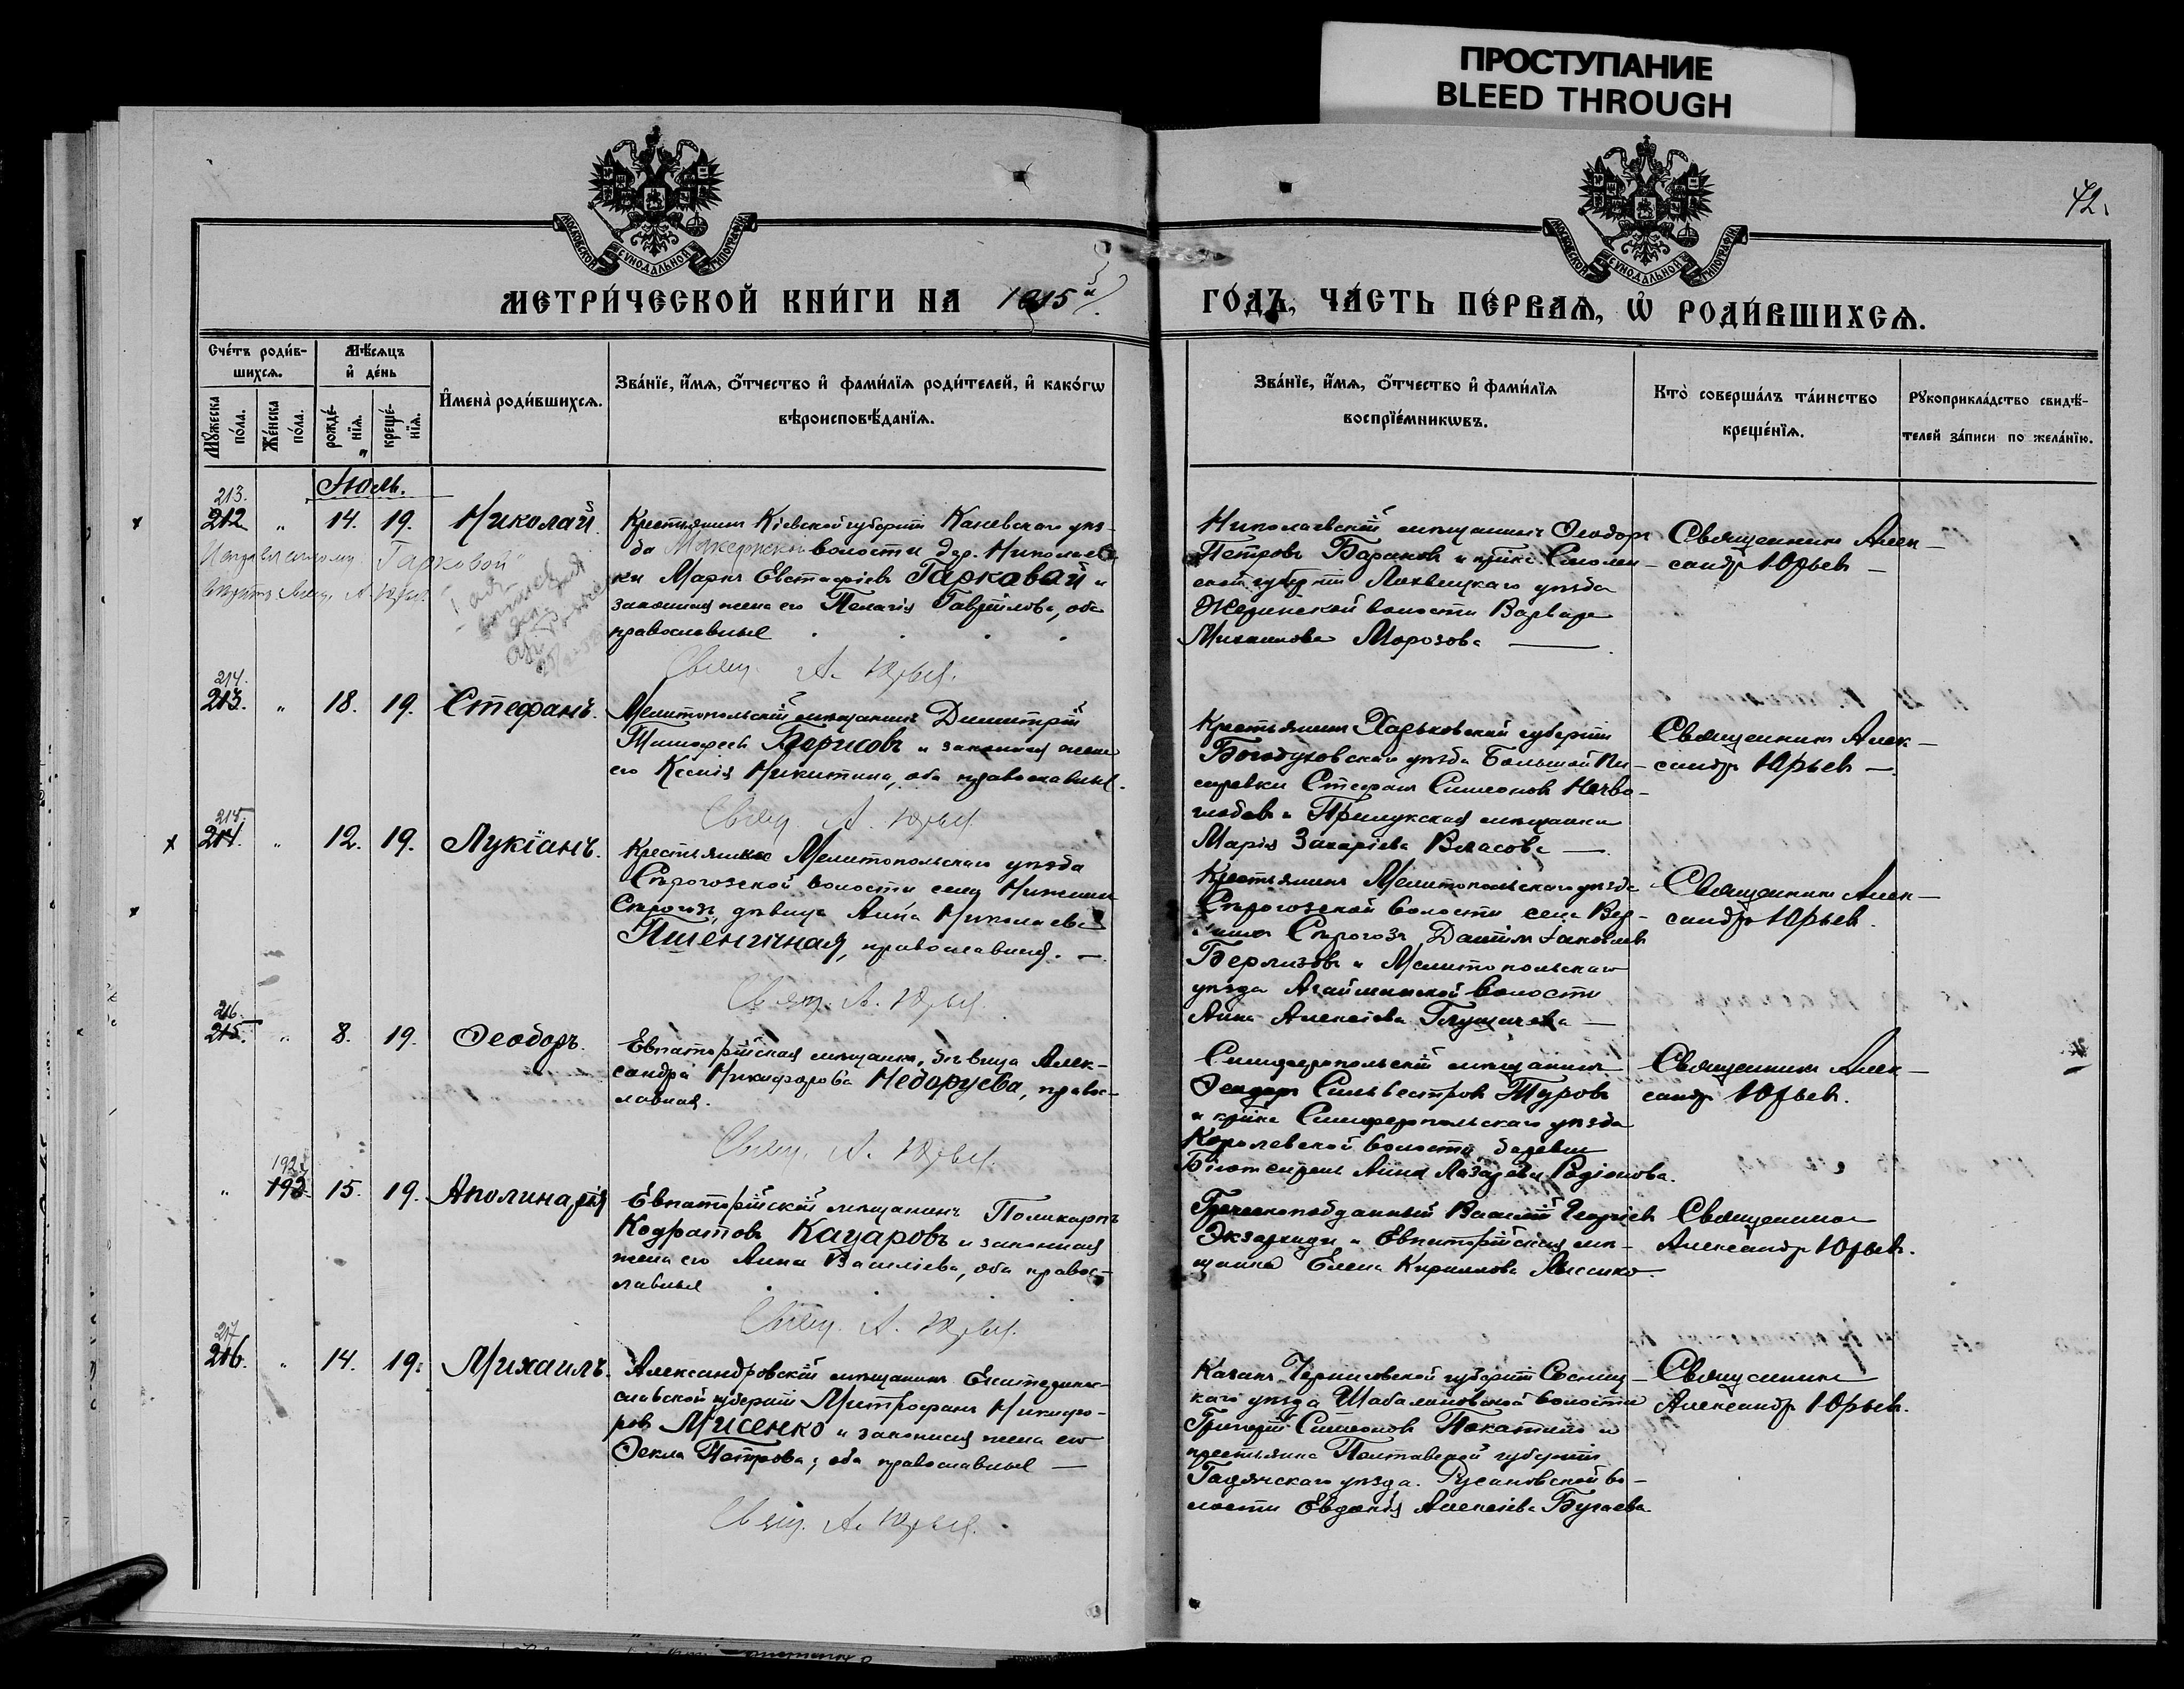 ПРОСТУПАНИЕ
BLEED THROUGH
42.
МОСКОВСКОЙ СѴНОДАЛЬНОЙ ТИПОГРАФІИ
МОСКОВСКОЙ СѴНОДАЛЬНОЙ ТИПОГРАФІИ
МЕТРИ́ЧЕСКОЙ КНИ́ГИ НА 1915й
ГО́ДЪ, ЧА́СТЬ ПЕ́РВАѦ, Ѡ҆ РОДИ́ВШИХСѦ.
Сче́тъ роди́в-
шихсѧ.
Мѣ́сѧцъ
и҆ де́нь
Мꙋ́жеска по́ла.
Же́нска по́ла.
рожде́-
нїѧ.
креще́-
нїѧ.
И҆мена̀ роди́вшихсѧ.
Зва́нїе, и҆́мѧ, ѻ҆́тчество и҆ фами́лїѧ роди́телей, и҆ како́гѡ
вѣроисповѣ́данїѧ.
Зва́нїе, и҆́мѧ, ѻ҆́тчество и҆ фами́лїѧ
воспрїе́мникѡвъ.
Кто̀ соверша́лъ та́инство
креще́нїѧ.
Рꙋкоприкла́дство свидѣ́-
телей за́писи по жела́нїю.
Іюль.
213.
212 " 14. 19. Николай
Крестьянинъ Кіевской губерніи Каневскаго уѣз-
да волости дер. Николаев
ки Маркъ Евстафіевъ Гаркавай и
законная жена его Пелагія Гавріилова, оба
православные
Свящ. А. Юрьев.
Гарковой
Николаевскій мѣщанинъ Ѳеодоръ
Петровъ Барановъ и кр-нка Смолен-
ской губерніи уѣзда
волости Варвара
Михаилова Морозова
Священникъ Алек-
сандръ Юрьевъ
214.
213. " 18. 19. Стефанъ.
Мелитопольскій мѣщанинъ Димитрій
Тимофеевъ Борисовъ и законная жена
его Ксенія Никитина, оба православные.
Свящ. А. Юрьев.
Крестьянинъ Харьковской губерніи
Богодуховскаго уѣзда Большой Пи-
саревки Стефанъ Симеоновъ
и Прилукская мѣщанка
Марія Захаріева Власова
Священникъ Алек-
сандръ Юрьевъ
215.
214. " 12. 19. Лукіанъ.
Крестьянка Мелитопольскаго уѣзда
Сѣрогозской волости села Нижнихъ
Сѣрогозъ, дѣвица Анна Николаева
Пшеничная, православная.
Свящ. А. Юрьев.
Крестьянинъ Мелитопольскаго уѣзда
Сѣрогозской волости села Вер-
Сѣрогозъ Даніилъ Іаковлевъ
Берлизовъ и Мелитопольскаго
уѣзда Агайманской волости
Анна Алексіева
Священникъ Алек-
сандръ Юрьевъ.
216.
215. " 8. 19. Ѳеодоръ.
Евпаторійская мѣщанка, дѣвица Алек-
сандра Никифорова Недоруева, право-
славная.
Свящ. А. Юрьев.
Симферопольскій мѣщанинъ
Ѳеодоръ Сильвестровъ Туровъ
и кр-нка Симферопольскаго уѣзда
волости деревни
Анна Лазарева Родіонова.
Священникъ Алек-
сандръ Юрьевъ.
192.
" 193. 15. 19. Аполинарія
Евпаторійскій мѣщанинъ Поликарпъ
Кодратовъ Кацаровъ и законная
жена его Анна Василіева, оба правос-
лавные
Свящ. А. Юрьев.
Греческоподданный Василій Георгіевъ
и Евпаторійская мѣ-
щанка Елена Кириллова
Священникъ
Александръ Юрьевъ.
217
216. " 14. 19. Михаилъ.
Александровскій мѣщанинъ Екатерино-
славской губерніи Митрофанъ Никифо-
ровъ Мисенко и законная жена его
Ѳекла Петрова; оба православные
Свящ. А. Юрьев.
Казакъ Черниговской губерніи Сосниц-
каго уѣзда Шабалиновской волости
Григорій Симеоновъ Покатило и
крестьянка Полтавской губерніи
Гадячскаго уѣзда. Русановской во-
лости Евдокія Алексіева Бугаева
Священникъ
Александръ Юрьевъ.